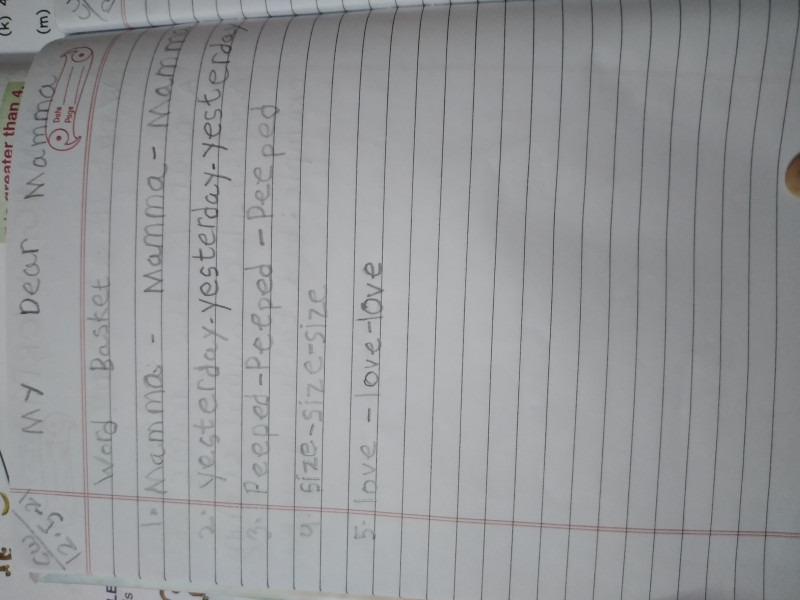 (k)
(m)
greater than 4.
My Dear Mamma
Date
Page
12.5.21
Word Basket
1. Mamma - Mamma - Mamma
2. yesterday-yesterday-yesterday
3. Peeped-Peeped-Peeped
4. size-size-size
5. love-love-love